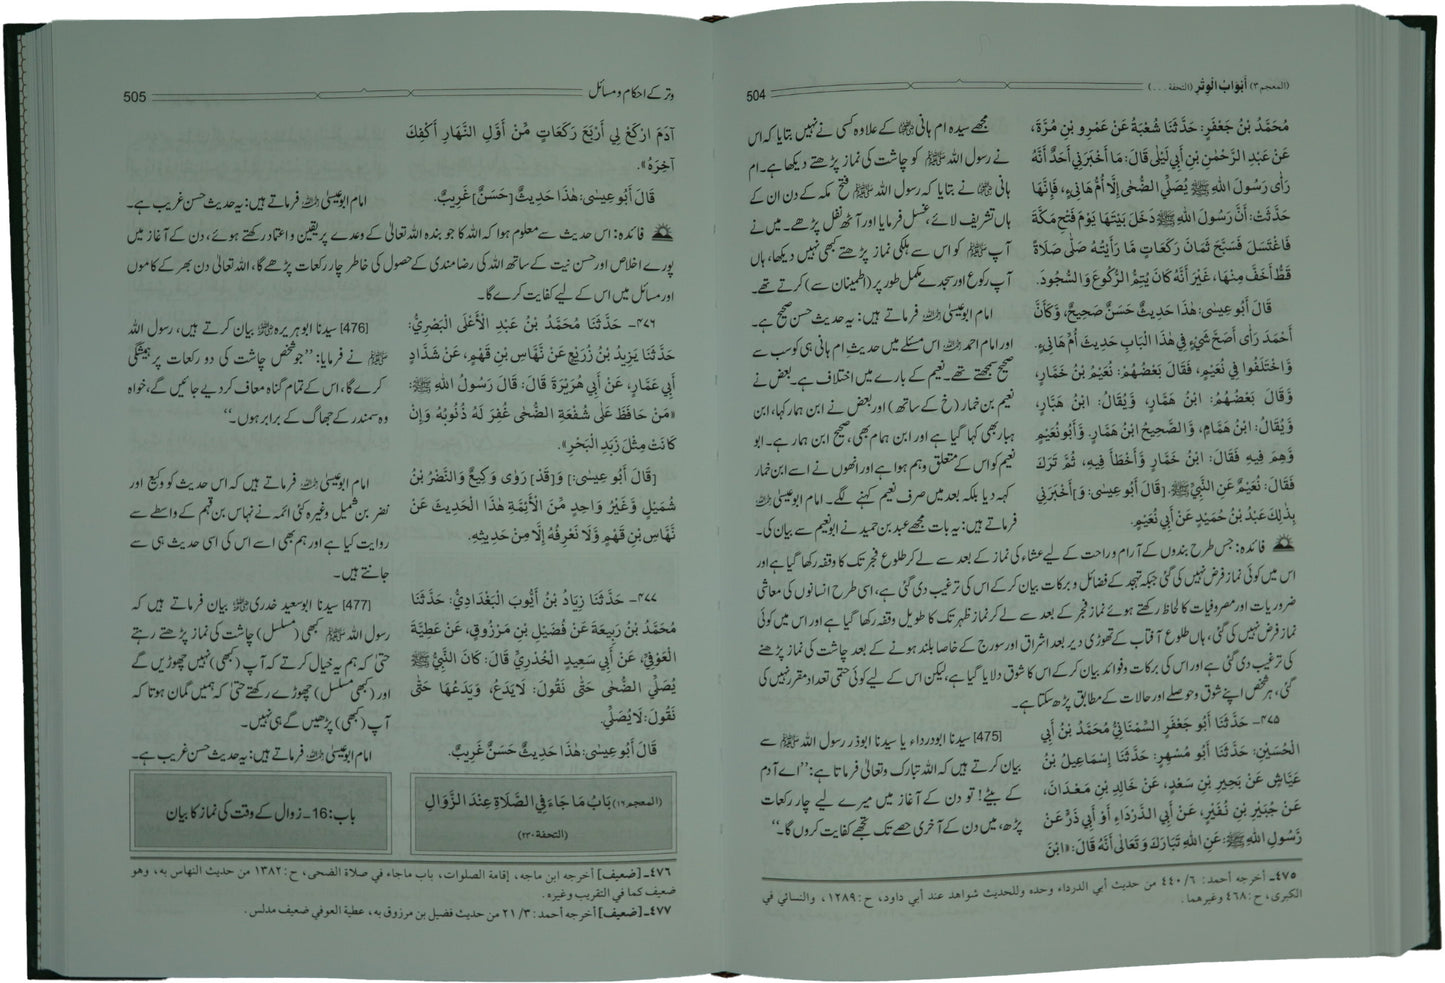 (المعجم ٣) أَبْوَابُ الْوِتْرِ (التحفة . . .)
504
مُحَمَّدُ بْنُ جَعْفَرٍ: حَدَّثَنَا شُعْبَةُ عَنْ عَمْرِو بْنِ مُرَّةَ،
عَنْ عَبْدِ الرَّحْمٰنِ بْنِ أَبِي لَيْلٰى قَالَ: مَا أَخْبَرَنِي أَحَدٌ أَنَّهُ
رَأٰى رَسُولَ اللهِ ﷺ يُصَلِّي الضُّحٰى إِلَّا أُمُّ هَانِيءٍ، فَإِنَّهَا
حَدَّثَتْ: أَنَّ رَسُولَ اللهِ ﷺ دَخَلَ بَيْتَهَا يَوْمَ فَتْحِ مَكَّةَ
فَاغْتَسَلَ فَسَبَّحَ ثَمَانَ رَكَعَاتٍ مَا رَأَيْتُهُ صَلّٰى صَلَاةً
قَطُّ أَخَفَّ مِنْهَا، غَيْرَ أَنَّهُ كَانَ يُتِمُّ الرُّكُوعَ وَالسُّجُودَ.
قَالَ أَبُو عِيسٰى: هٰذَا حَدِيثٌ حَسَنٌ صَحِيحٌ، وَكَأَنَّ
أَحْمَدَ رَأٰى أَصَحَّ شَيْءٍ فِي هٰذَا الْبَابِ حَدِيثَ أُمِّ هَانِيءٍ.
وَاخْتَلَفُوا فِي نُعَيْمٍ، فَقَالَ بَعْضُهُمْ: نُعَيْمُ بْنُ خَمَّارٍ،
وَقَالَ بَعْضُهُمْ: ابْنُ هَمَّارٍ، وَيُقَالُ: ابْنُ هَبَّارٍ،
وَيُقَالُ: ابْنُ هَمَّامٍ، وَالصَّحِيحُ ابْنُ هَمَّارٍ. وَأَبُو نُعَيْمٍ
وَهِمَ فِيهِ فَقَالَ: ابْنُ خَمَّارٍ وَأَخْطَأَ فِيهِ، ثُمَّ تَرَكَ
فَقَالَ: نُعَيْمٌ عَنِ النَّبِيِّ ﷺ. [قَالَ أَبُو عِيسٰى: وَ] أَخْبَرَنِي
بِذٰلِكَ عَبْدُ بْنُ حُمَيْدٍ عَنْ أَبِي نُعَيْمٍ.
مجھے سیدہ ام ہانی ؓ کے علاوہ کسی نے نہیں بتایا کہ اس
نے رسول اللہ ﷺ کو چاشت کی نماز پڑھتے دیکھا ہے۔ ام
ہانی ؓ نے بتایا کہ رسول اللہ ﷺ فتح مکہ کے دن ان کے
ہاں تشریف لائے، غسل فرمایا اور آٹھ نفل پڑھے۔ میں نے
آپ ﷺ کو اس سے ہلکی نماز پڑھتے کبھی نہیں دیکھا، ہاں
آپ رکوع اور سجدے مکمل طور پر (اطمینان سے) کرتے تھے۔
امام ابوعیسیٰ ؒ فرماتے ہیں: یہ حدیث حسن صحیح ہے۔
اور امام احمد ؒ اس مسئلے میں حدیث ام ہانی ہی کو سب سے
صحیح سمجھتے تھے۔ نعیم کے بارے میں اختلاف ہے۔ بعض نے
نعیم بن خمار (خ کے ساتھ) اور بعض نے ابن ہمار کہا، ابن
ہبار بھی کہا گیا ہے اور ابن ہمام بھی، صحیح ابن ہمار ہے۔ ابو
نعیم کو اس کے متعلق وہم ہوا ہے اور انھوں نے اسے ابن خمار
کہہ دیا بلکہ بعد میں صرف نعیم کہنے لگے۔ امام ابوعیسیٰ ؒ
فرماتے ہیں: یہ بات مجھے عبد بن حمید نے ابونعیم سے بیان کی۔
فائدہ: جس طرح بندوں کے آرام و راحت کے لیے عشاء کی نماز کے بعد سے لے کر طلوع فجر تک کا وقفہ رکھا گیا ہے اور
اس میں کوئی نماز فرض نہیں کی گئی جبکہ تہجد کے فضائل و برکات بیان کر کے اس کی ترغیب دی گئی ہے، اسی طرح انسانوں کی معاشی
ضروریات اور مصروفیات کا لحاظ رکھتے ہوئے نماز فجر کے بعد سے لے کر نماز ظہر تک کا طویل وقفہ رکھا گیا ہے اور اس میں کوئی
نماز فرض نہیں کی گئی، ہاں طلوع آفتاب کے تھوڑی دیر بعد اشراق اور سورج کے خاصا بلند ہونے کے بعد چاشت کی نماز پڑھنے
کی ترغیب دی گئی ہے اور اس کی برکات و فوائد بیان کر کے اس کا شوق دلایا گیا ہے، لیکن اس کے لیے کوئی حتمی تعداد مقرر نہیں کی
گئی، ہر شخص اپنے شوق و حوصلے اور حالات کے مطابق پڑھ سکتا ہے۔
٤٧٥- حَدَّثَنَا أَبُو جَعْفَرٍ السِّمْنَانِيُّ مُحَمَّدُ بْنُ أَبِي
الْحُسَيْنِ: حَدَّثَنَا أَبُو مُسْهِرٍ: حَدَّثَنَا إِسْمَاعِيلُ بْنُ
عَيَّاشٍ عَنْ بَحِيرِ بْنِ سَعْدٍ، عَنْ خَالِدِ بْنِ مَعْدَانَ،
عَنْ جُبَيْرِ بْنِ نُفَيْرٍ، عَنْ أَبِي الدَّرْدَاءِ أَوْ أَبِي ذَرٍّ عَنْ
رَّسُولِ اللهِ ﷺ: عَنِ اللهِ تَبَارَكَ وَتَعَالٰى أَنَّهُ قَالَ: «ابْنَ
[475] سیدنا ابودرداء یا سیدنا ابوذر رسول اللہ ﷺ سے
بیان کرتے ہیں کہ اللہ تبارک وتعالیٰ فرماتا ہے: ’’اے آدم
کے بیٹے! تو دن کے آغاز میں میرے لیے چار رکعات
پڑھ، میں دن کے آخری حصے تک تجھے کفایت کروں گا۔‘‘
٤٧٥- أخرجه أحمد: ٦/ ٤٤٠ من حديث أبي الدرداء وحده وللحديث شواهد عند أبي داود، ح: ١٢٨٩، والنسائي في
الكبرى، ح: ٤٦٨ وغيرهما.
وتر کے احکام و مسائل
505
آدَمَ ارْكَعْ لِي أَرْبَعَ رَكَعَاتٍ مِّنْ أَوَّلِ النَّهَارِ أَكْفِكَ
آخِرَهُ».
قَالَ أَبُو عِيسٰى: هٰذَا حَدِيثٌ [حَسَنٌ] غَرِيبٌ.
امام ابوعیسیٰ ؒ فرماتے ہیں: یہ حدیث حسن غریب ہے۔
فائدہ: اس حدیث سے معلوم ہوا کہ اللہ کا جو بندہ اللہ تعالیٰ کے وعدے پر یقین و اعتماد رکھتے ہوئے، دن کے آغاز میں
پورے اخلاص اور حسن نیت کے ساتھ اللہ کی رضامندی کے حصول کی خاطر چار رکعات پڑھے گا، اللہ تعالیٰ دن بھر کے کاموں
اور مسائل میں اس کے لیے کفایت کرے گا۔
٤٧٦- حَدَّثَنَا مُحَمَّدُ بْنُ عَبْدِ الْأَعْلَى الْبَصْرِيُّ:
حَدَّثَنَا يَزِيدُ بْنُ زُرَيْعٍ عَنْ نَّهَّاسِ بْنِ قَهْمٍ، عَنْ شَدَّادٍ
أَبِي عَمَّارٍ، عَنْ أَبِي هُرَيْرَةَ قَالَ: قَالَ رَسُولُ اللهِ ﷺ:
«مَنْ حَافَظَ عَلٰى شُفْعَةِ الضُّحٰى غُفِرَ لَهُ ذُنُوبُهُ وَإِنْ
كَانَتْ مِثْلَ زَبَدِ الْبَحْرِ».
[قَالَ أَبُو عِيسٰى:] وَ[قَدْ] رَوٰى وَكِيعٌ وَالنَّضْرُ بْنُ
شُمَيْلٍ وَغَيْرُ وَاحِدٍ مِّنَ الْأَئِمَّةِ هٰذَا الْحَدِيثَ عَنْ
نَّهَّاسِ بْنِ قَهْمٍ وَلَا نَعْرِفُهُ إِلَّا مِنْ حَدِيثِهِ.
[476] سیدنا ابوہریرہ ؓ بیان کرتے ہیں، رسول اللہ
ﷺ نے فرمایا: ’’جو شخص چاشت کی دو رکعات پر ہمیشگی
کرے گا، اس کے تمام گناہ معاف کر دیے جائیں گے، خواہ
وہ سمندر کے جھاگ کے برابر ہوں۔‘‘
امام ابوعیسیٰ ؒ فرماتے ہیں کہ اس حدیث کو وکیع اور
نضر بن شمیل وغیرہ کئی ائمہ نے نہاس بن قہم کے واسطے سے
روایت کیا ہے اور ہم بھی اسے اس کی اسی حدیث ہی سے
جانتے ہیں۔
٤٧٧- حَدَّثَنَا زِيَادُ بْنُ أَيُّوبَ الْبَغْدَادِيُّ: حَدَّثَنَا
مُحَمَّدُ بْنُ رَبِيعَةَ عَنْ فُضَيْلِ بْنِ مَرْزُوقٍ، عَنْ عَطِيَّةَ
الْعَوْفِيِّ، عَنْ أَبِي سَعِيدٍ الْخُدْرِيِّ قَالَ: كَانَ النَّبِيُّ ﷺ
يُصَلِّي الضُّحٰى حَتّٰى نَقُولَ: لَا يَدَعُ، وَيَدَعُهَا حَتّٰى
نَقُولَ: لَا يُصَلِّي.
قَالَ أَبُو عِيسٰى: هٰذَا حَدِيثٌ حَسَنٌ غَرِيبٌ.
[477] سیدنا ابوسعید خدری ؓ بیان فرماتے ہیں کہ
رسول اللہ ﷺ کبھی (مسلسل) چاشت کی نماز پڑھتے رہتے
حتیٰ کہ ہم یہ خیال کرتے کہ آپ (کبھی) نہیں چھوڑیں گے
اور (کبھی مسلسل) چھوڑے رکھتے حتیٰ کہ ہمیں گمان ہوتا کہ
آپ (کبھی) پڑھیں گے ہی نہیں۔
امام ابوعیسیٰ ؒ فرماتے ہیں: یہ حدیث حسن غریب ہے۔
(المعجم ١٦) بَابُ مَا جَاءَ فِي الصَّلَاةِ عِنْدَ الزَّوَالِ
(التحفة ٢٣٠)
باب: 16۔ زوال کے وقت کی نماز کا بیان
٤٧٦- [ضعيف] أخرجه ابن ماجه، إقامة الصلوات، باب ماجاء في صلاة الضحى، ح: ١٣٨٢ من حديث النهاس به، وهو
ضعيف كما في التقريب وغيره.
٤٧٧- [ضعيف] أخرجه أحمد: ٣/ ٢١ من حديث فضيل بن مرزوق به، عطية العوفي ضعيف مدلس.